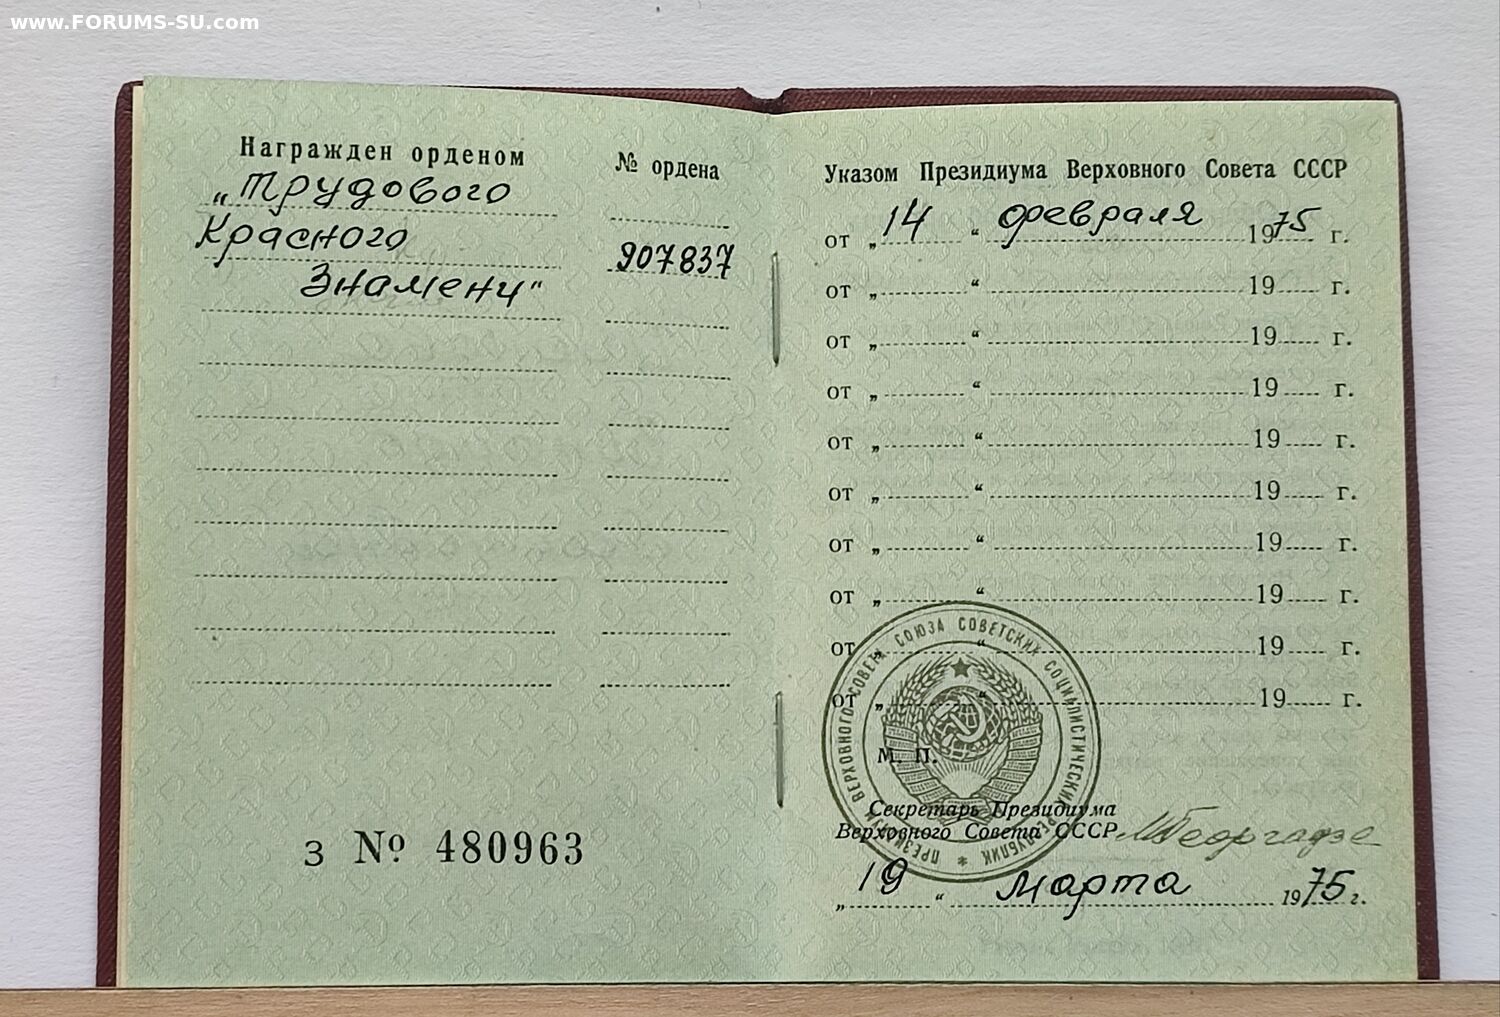 www.FORUMS-SU.com
Награжден орденом
№ ордена
„Трудового
Красного
907837
Знамени“
З № 480963
Указом Президиума Верховного Совета СССР
от „14“ февраля 1975 г.
от „ “ 19 г.
от „ “ 19 г.
от „ “ 19 г.
от „ “ 19 г.
от „ “ 19 г.
от „ “ 19 г.
от „ “ 19 г.
от „ “ 19 г.
от „ “ 19 г.
ПРЕЗИДИУМ ВЕРХОВНОГО СОВЕТА СОЮЗА СОВЕТСКИХ СОЦИАЛИСТИЧЕСКИХ РЕСПУБЛИК *
М. П.
Секретарь Президиума
Верховного Совета СССР МГеоргадзе
„19“ марта 1975 г.